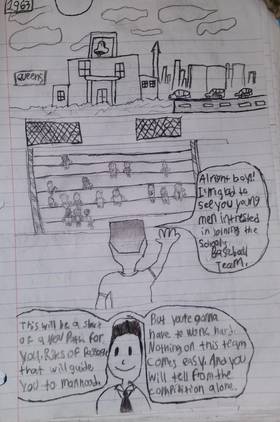 1963
QUEENS
Alright boys!
I'm glad to
see you young
men intrested
in joining the
Baseball
Team.
This will be a start
of a new Path for
you. of Passage
that will guide
You to manhood.
But you're gonna
have to work hard.
Nothing on this team
comes easy. And you
will tell from the
compitition alone.